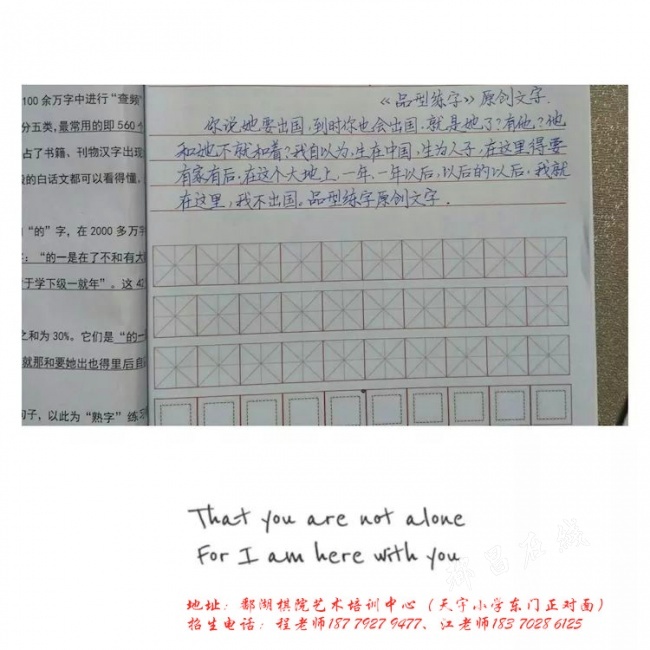 100余万字中进行“查频
分五类,最常用的即560个
占了书籍、刊物汉字出现
的白话文都可以看得懂。
“的”字,在2000多万字
:“的一是在了不和有大
于学下级一就年”。这42
之和为30%。它们是“的一
就那和要她出也得里后自
句子,以此为“熟字”练
《品型练字》原创文字.
你说她要出国,到时你也会出国,就是她了?有他?他
和她不就和着?我自以为,生在中国,生为人子,在这里得要
有家有后,在这个大地上,一年,一年以后,以后的以后,我就
在这里,我不出国。品型练字原创文字.
That you are not alone
For I am here with you
地址:鄱湖棋院艺术培训中心(天宇小学东门正对面)
招生电话:程老师187 7927 9477、江老师183 7028 6125